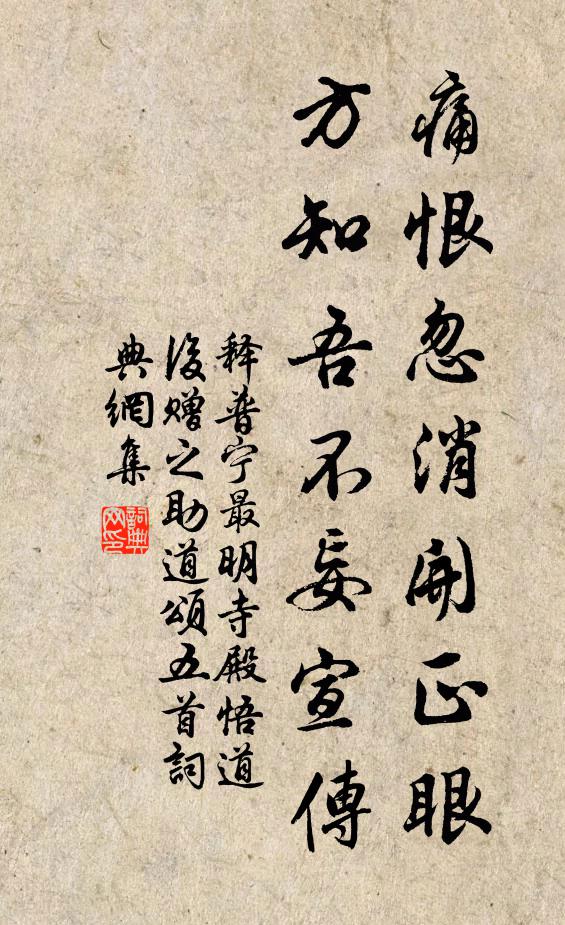 痛恨忽消開正眼
方知吾不妄宣傳
释普宁最明寺殿悟道
後赠之助道頌五首詞
典網集
詞典网印